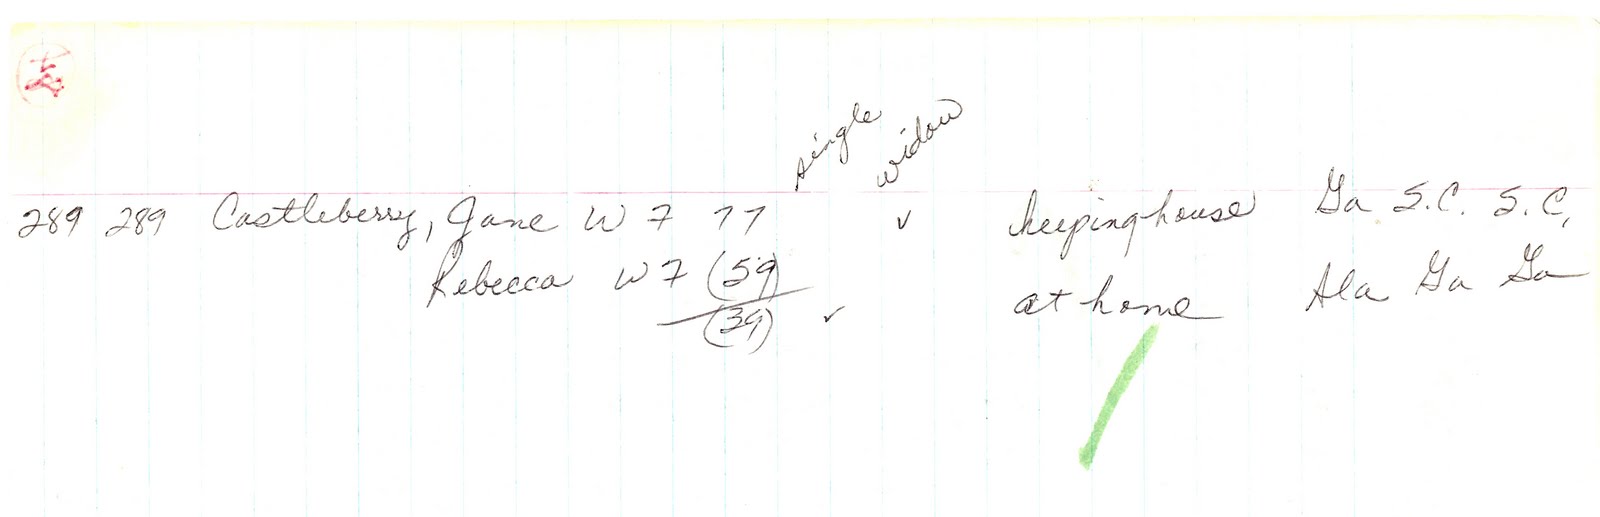 single
widow
289 289 Castleberry, Jane W F 77 ✓ keeping house Ga S.C. S.C.
Rebecca W F (59) at home Ala Ga Ga
(39) ✓